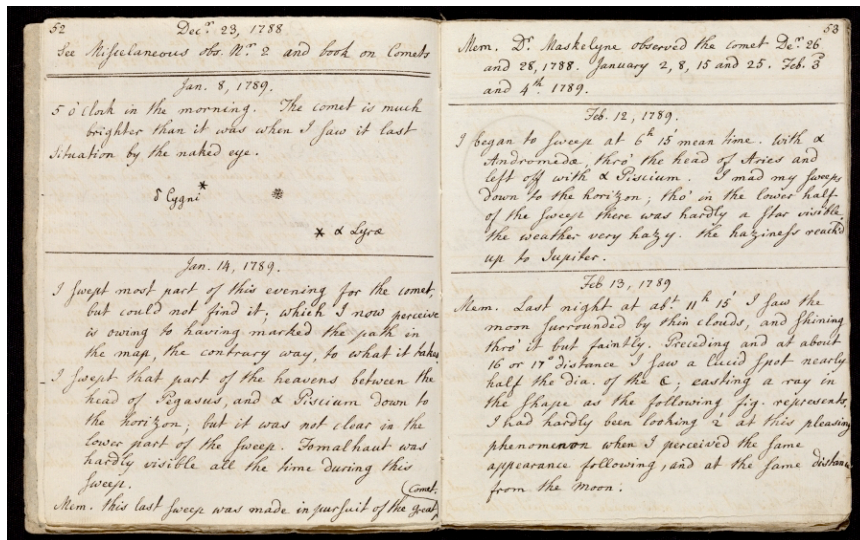 52
Decr. 23, 1788
See Miscelaneous obs. Nr. 2 and book on Comets
Jan. 8, 1789.
5 o'Clock in the morning. The comet is much
brighter than it was when I saw it last
Situation by the naked eye.
δ Cygni
α Lyræ
Jan. 14, 1789.
I swept most part of this evening for the comet,
but could not find it; which I now perceive
is owing to having marked the path in
the map, the contrary way, to what it takes
I swept that part of the heavens between the
head of Pegasus, and α Piscium down to
the horizon; but it was not clear in the
lower part of the sweep. Fomalhaut was
hardly visible all the time during this
sweep.
Mem. this last sweep was made in pursuit of the great
Comet.
53
Mem. Dr. Maskelyne observed the comet Decr. 26
and 28, 1788. January 2, 8, 15 and 25. Feb. 3
and 4th. 1789.
Feb. 12, 1789.
I began to sweep at 6h 15' mean time. With α
Andromedæ, thro' the head of Aries and
left off with α Piscium. I mad my sweeps
down to the horizon; tho' in the lower half
of the sweep there was hardly a star visible.
the weather very hazy. the haziness reach'd
up to Jupiter.
Feb 13, 1789
Mem. Last night at abt. 11h 15' I saw the
moon surrounded by thin clouds, and shining
thro' it but faintly. Preceding and at about
16 or 17° distance I saw a lucid spot nearly
half the dia. of the ☾; casting a ray in
the shape as the following fig. represents.
I had hardly been looking 2' at this pleasing
phenomenon when I perceived the same
appearance following, and at the same distance
from the moon.